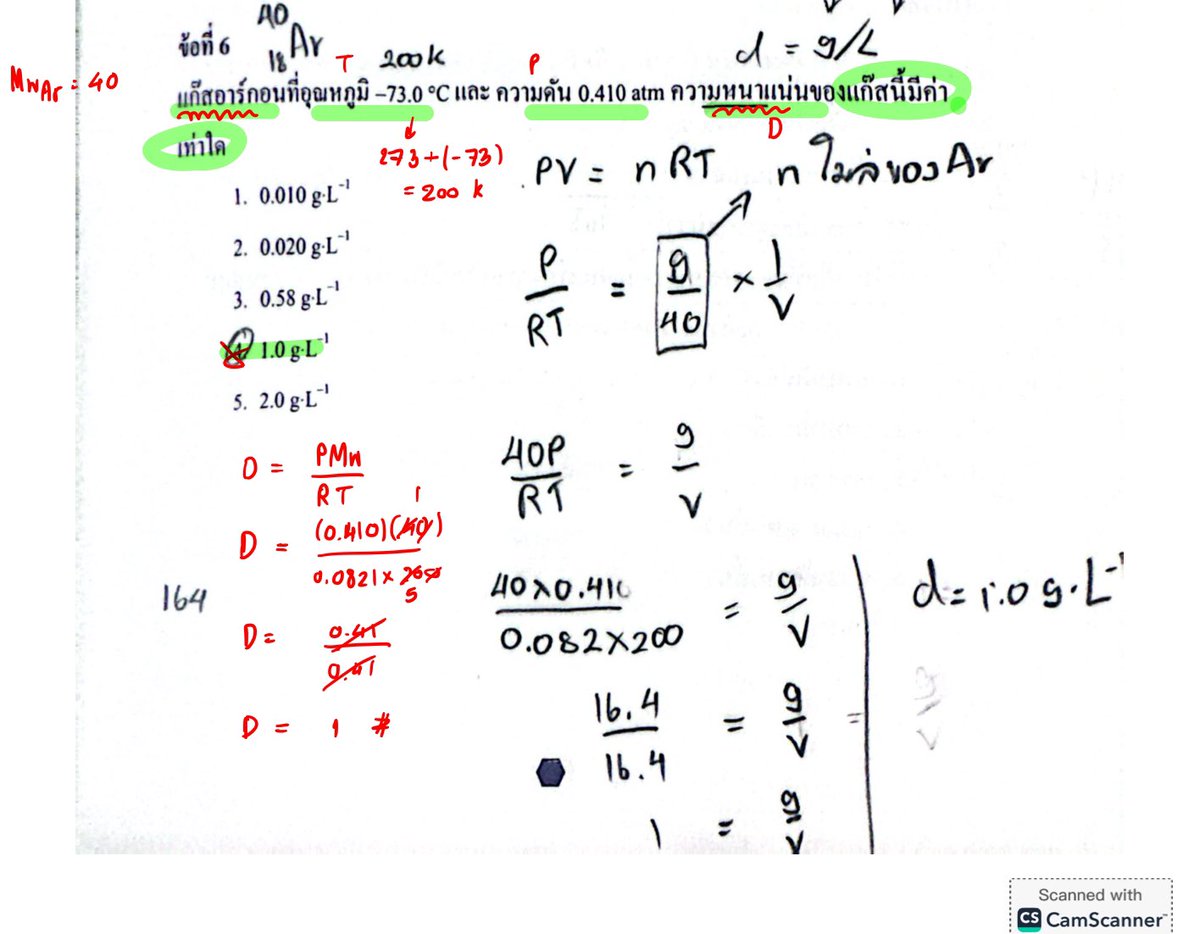 40
18 Ar
ข้อที่ 6
T 200 K P d = g/L
MwAr = 40
แก๊สอาร์กอนที่อุณหภูมิ –73.0 °C และ ความดัน 0.410 atm ความหนาแน่นของแก๊สนี้มีค่า
เท่าใด
D
273 + (-73)
= 200 K
PV = nRT n โมลของ Ar
1. 0.010 g·L⁻¹
2. 0.020 g·L⁻¹
3. 0.58 g·L⁻¹
4. 1.0 g·L⁻¹
5. 2.0 g·L⁻¹
P/RT = g/40 × 1/V
40P/RT = g/V
40×0.410/0.082×200 = g/V
16.4/16.4 = g/V =
1 = g/V
d = 1.0 g·L⁻¹
g/V
D = PMw/RT
1
D = (0.410)(40)/0.0821×200
5
D = 0.41/0.41
D = 1 #
164
Scanned with
CS CamScanner™